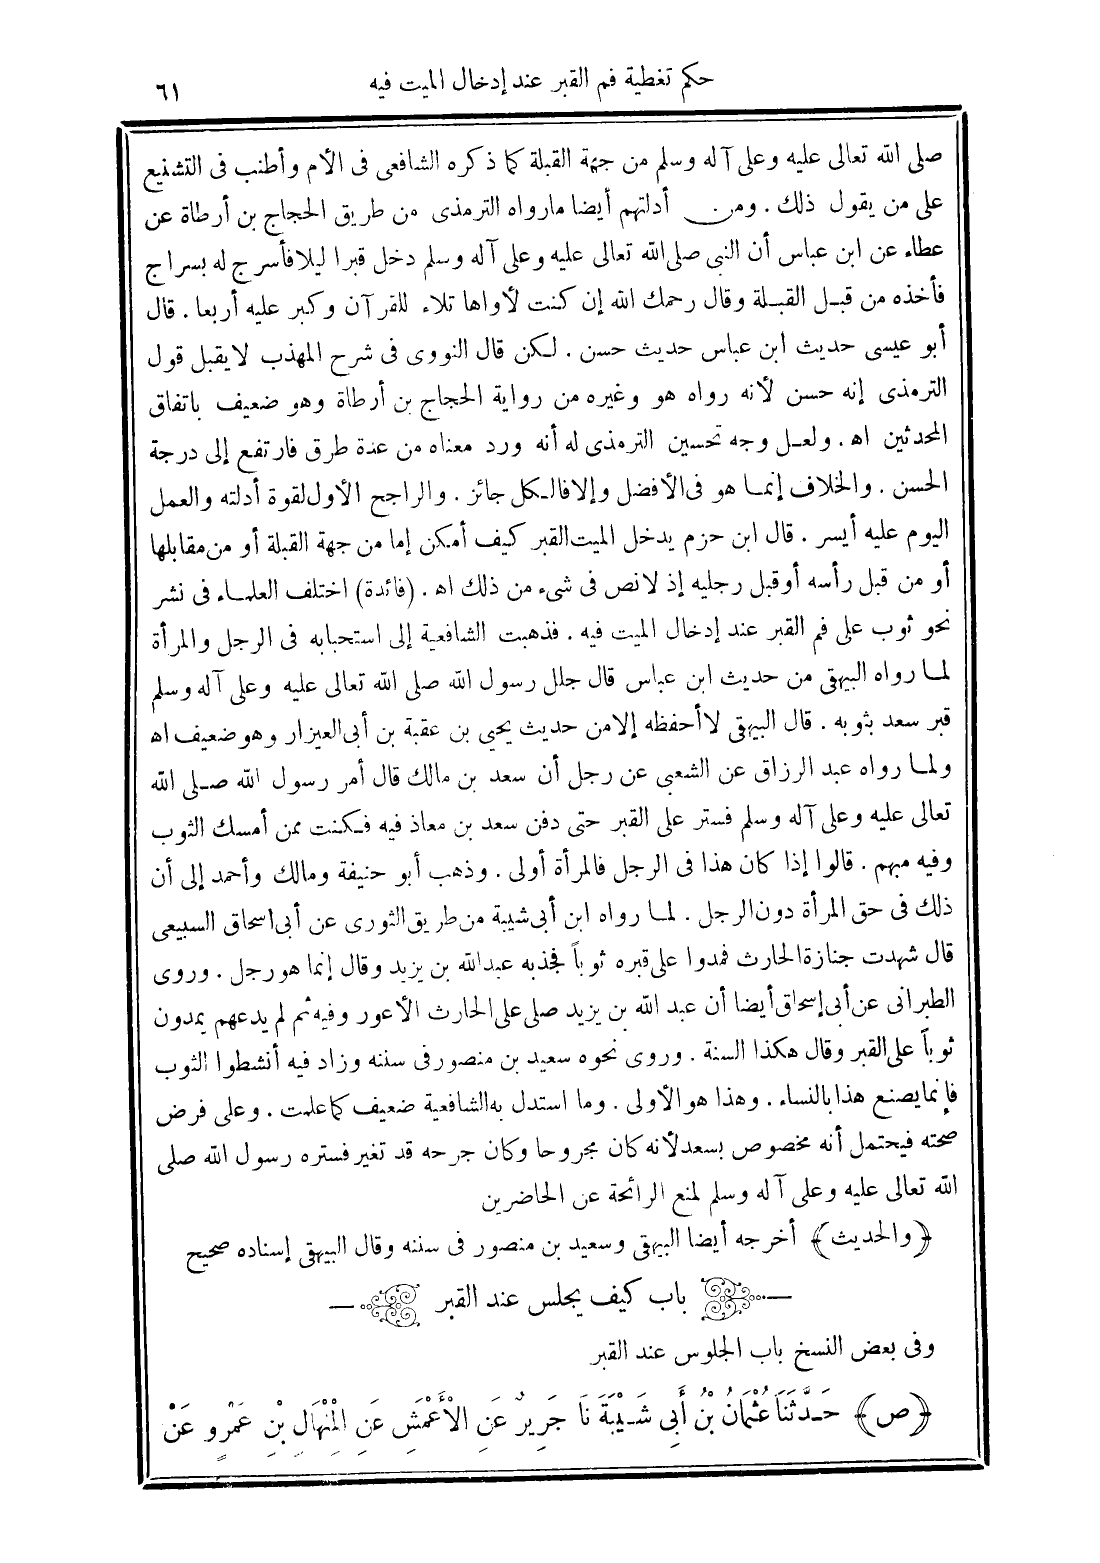 حكم تغطية فم القبر عند إدخال الميت فيه ٦١
صلى الله تعالى عليه وعلى آله وسلم من جهة القبلة كما ذكره الشافعى فى الأم وأطنب فى التشنيع
على من يقول ذلك . ومن أدلتهم أيضا مارواه الترمذى من طريق الحجاج بن أرطاة عن
عطاء عن ابن عباس أن النبى صلى الله تعالى عليه وعلى آله وسلم دخل قبرا ليلا فأسرج له بسراج
فأخذه من قبل القبلة وقال رحمك الله إن كنت لأواها تلاء للقرآن وكبر عليه أربعا . قال
أبو عيسى حديث ابن عباس حديث حسن . لكن قال النووى فى شرح المهذب لايقبل قول
الترمذى إنه حسن لأنه رواه هو وغيره من رواية الحجاج بن أرطاة وهو ضعيف باتفاق
المحدثين اه . ولعل وجه تحسين الترمذى له أنه ورد معناه من عدة طرق فارتفع إلى درجة
الحسن . والخلاف إنما هو فى الأفضل وإلا فالكل جائز . والراجح الأول لقوة أدلته والعمل
اليوم عليه أيسر . قال ابن حزم يدخل الميت القبر كيف أمكن إما من جهة القبلة أو من مقابلها
أو من قبل رأسه أوقبل رجليه إذ لانص فى شىء من ذلك اه . (فائدة) اختلف العلماء فى نشر
نحو ثوب على فم القبر عند إدخال الميت فيه . فذهبت الشافعية إلى استحبابه فى الرجل والمرأة
لما رواه البيهقى من حديث ابن عباس قال جلل رسول الله صلى الله تعالى عليه وعلى آله وسلم
قبر سعد بثوبه . قال البيهقى لاأحفظه إلامن حديث يحيى بن عقبة بن أبى العيزار وهو ضعيف اه
ولما رواه عبد الرزاق عن الشعبى عن رجل أن سعد بن مالك قال أمر رسول الله صلى الله
تعالى عليه وعلى آله وسلم فستر على القبر حتى دفن سعد بن معاذ فيه فكنت ممن أمسك الثوب
وفيه مبهم . قالوا إذا كان هذا فى الرجل فالمرأة أولى . وذهب أبو حنيفة ومالك وأحمد إلى أن
ذلك فى حق المرأة دون الرجل . لما رواه ابن أبى شيبة من طريق الثورى عن أبى اسحاق السبيعى
قال شهدت جنازة الحارث فمدوا على قبره ثوباً فجذبه عبدالله بن يزيد وقال إنما هو رجل . وروى
الطبرانى عن أبى إسحاق أيضا أن عبد الله بن يزيد صلى على الحارث الأعور وفيه ثم لم يدعهم يمدون
ثوباً على القبر وقال هكذا السنة . وروى نحوه سعيد بن منصور فى سننه وزاد فيه أنشطوا الثوب
فإنما يصنع هذا بالنساء . وهذا هو الأولى . وما استدل به الشافعية ضعيف كما علمت . وعلى فرض
صحته فيحتمل أنه مخصوص بسعد لأنه كان مجروحا وكان جرحه قد تغير فستره رسول الله صلى
الله تعالى عليه وعلى آله وسلم لمنع الرائحة عن الحاضرين
﴿والحديث﴾ أخرجه أيضا البيهقى وسعيد بن منصور فى سننه وقال البيهقى إسناده صحيح
باب كيف يجلس عند القبر
وفى بعض النسخ باب الجلوس عند القبر
﴿ص﴾ حَدَّثَنَا عُثْمَانُ بْنُ أَبِى شَيْبَةَ نَا جَرِيرٌ عَنِ الْأَعْمَشِ عَنِ الْمِنْهَالِ بْنِ عَمْرٍو عَنْ